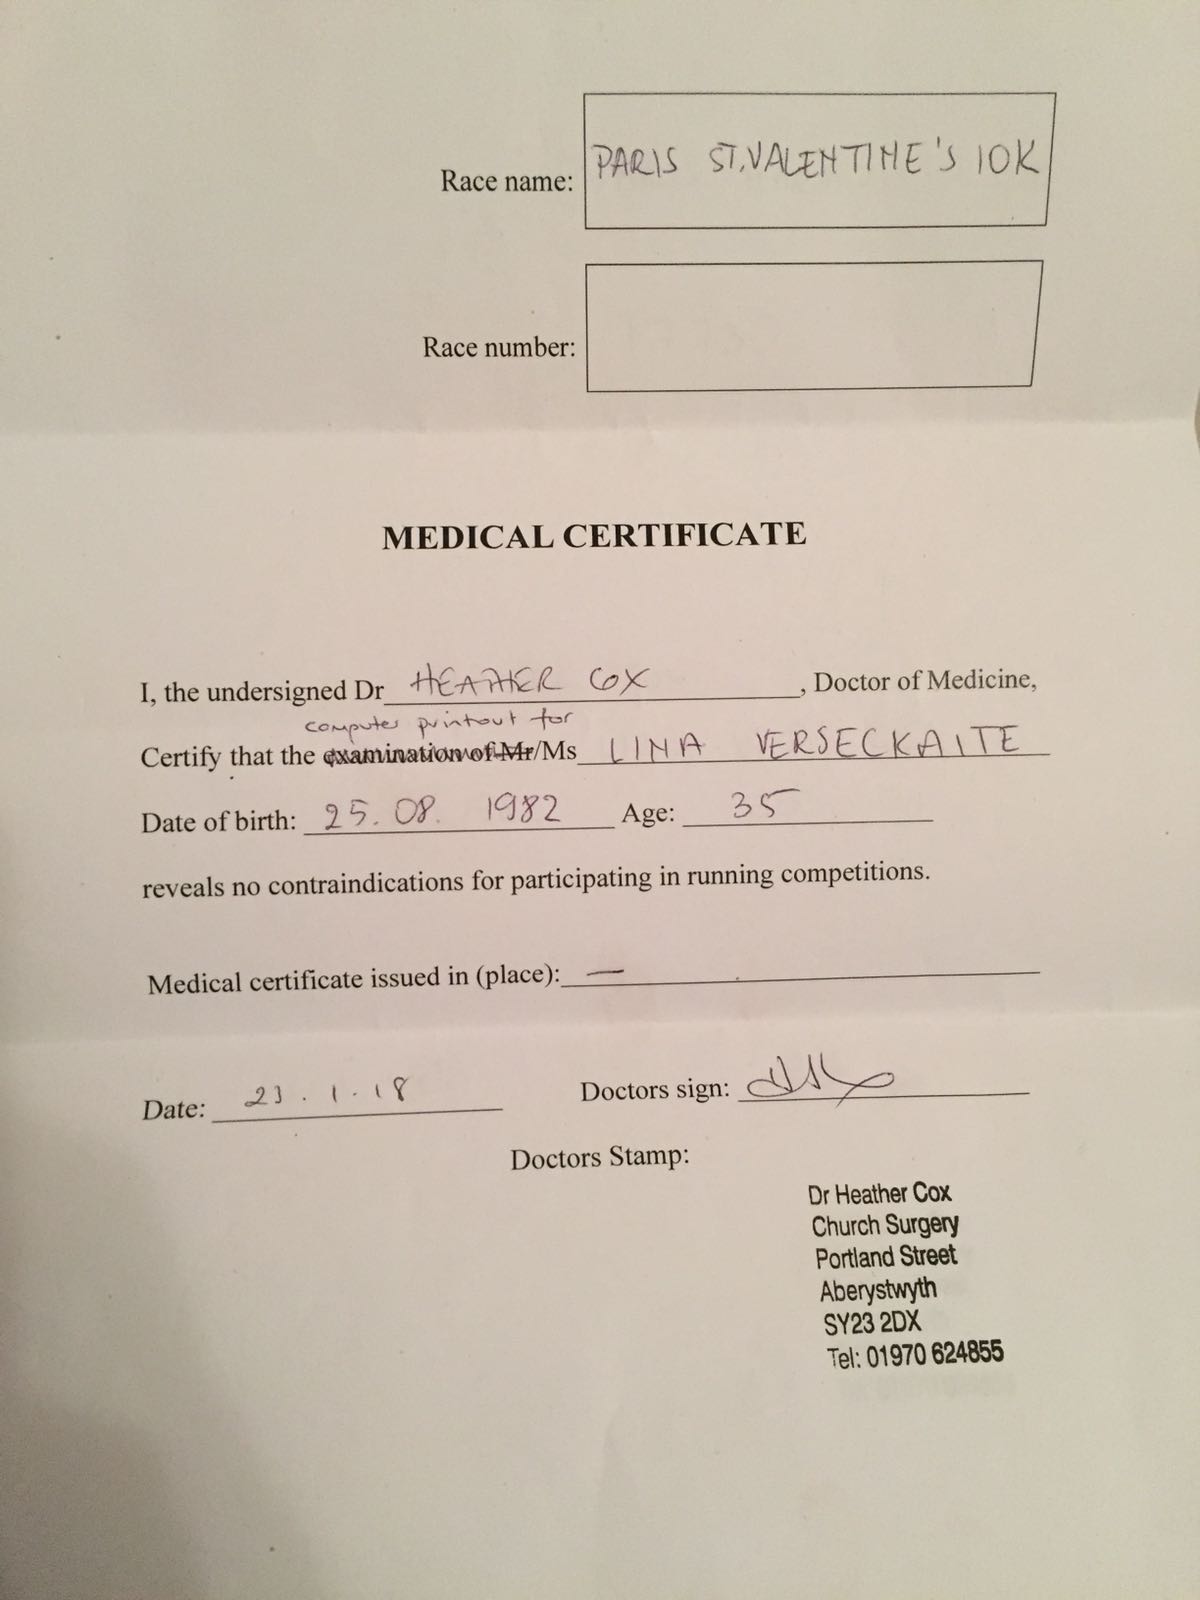 Race name: PARIS ST. VALENTINE'S 10K
Race number:
MEDICAL CERTIFICATE
I, the undersigned Dr HEATHER COX, Doctor of Medicine,
computer printout for
Certify that the examination of Mr/Ms LINA VERSECKAITE
Date of birth: 25. 08. 1982 Age: 35
reveals no contraindications for participating in running competitions.
Medical certificate issued in (place): —
Date: 23.1.18 Doctors sign:
Doctors Stamp:
Dr Heather Cox
Church Surgery
Portland Street
Aberystwyth
SY23 2DX
Tel: 01970 624855